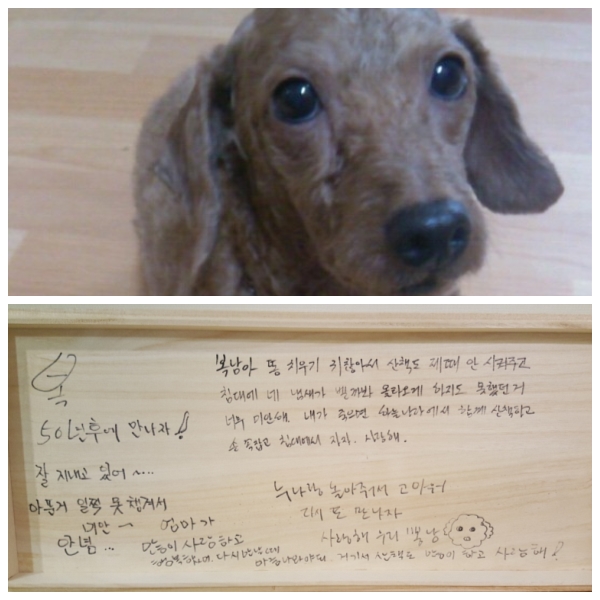 복
50년후에 만나자!!
잘 지내고 있어 ~...
아픈거 일찍 못 챙겨서
미안 ㅡ 엄마가
안녕...
복남아 똥 치우기 귀찮아서 산책도 제때 안 시켜주고
침대에 네 냄새가 밸까봐 올라오게 하지도 못했던거
너무 미안해. 내가 죽으면 하늘나라에서 함께 산책하고
손 꼭잡고 침대에서 자자. 사랑해.
누나랑 놀아줘서 고마워
다시 또 만나자
사랑해 우리 복남
사랑하고
행복하게, 다시 만날때
거기서 산책도 하고 사랑해!